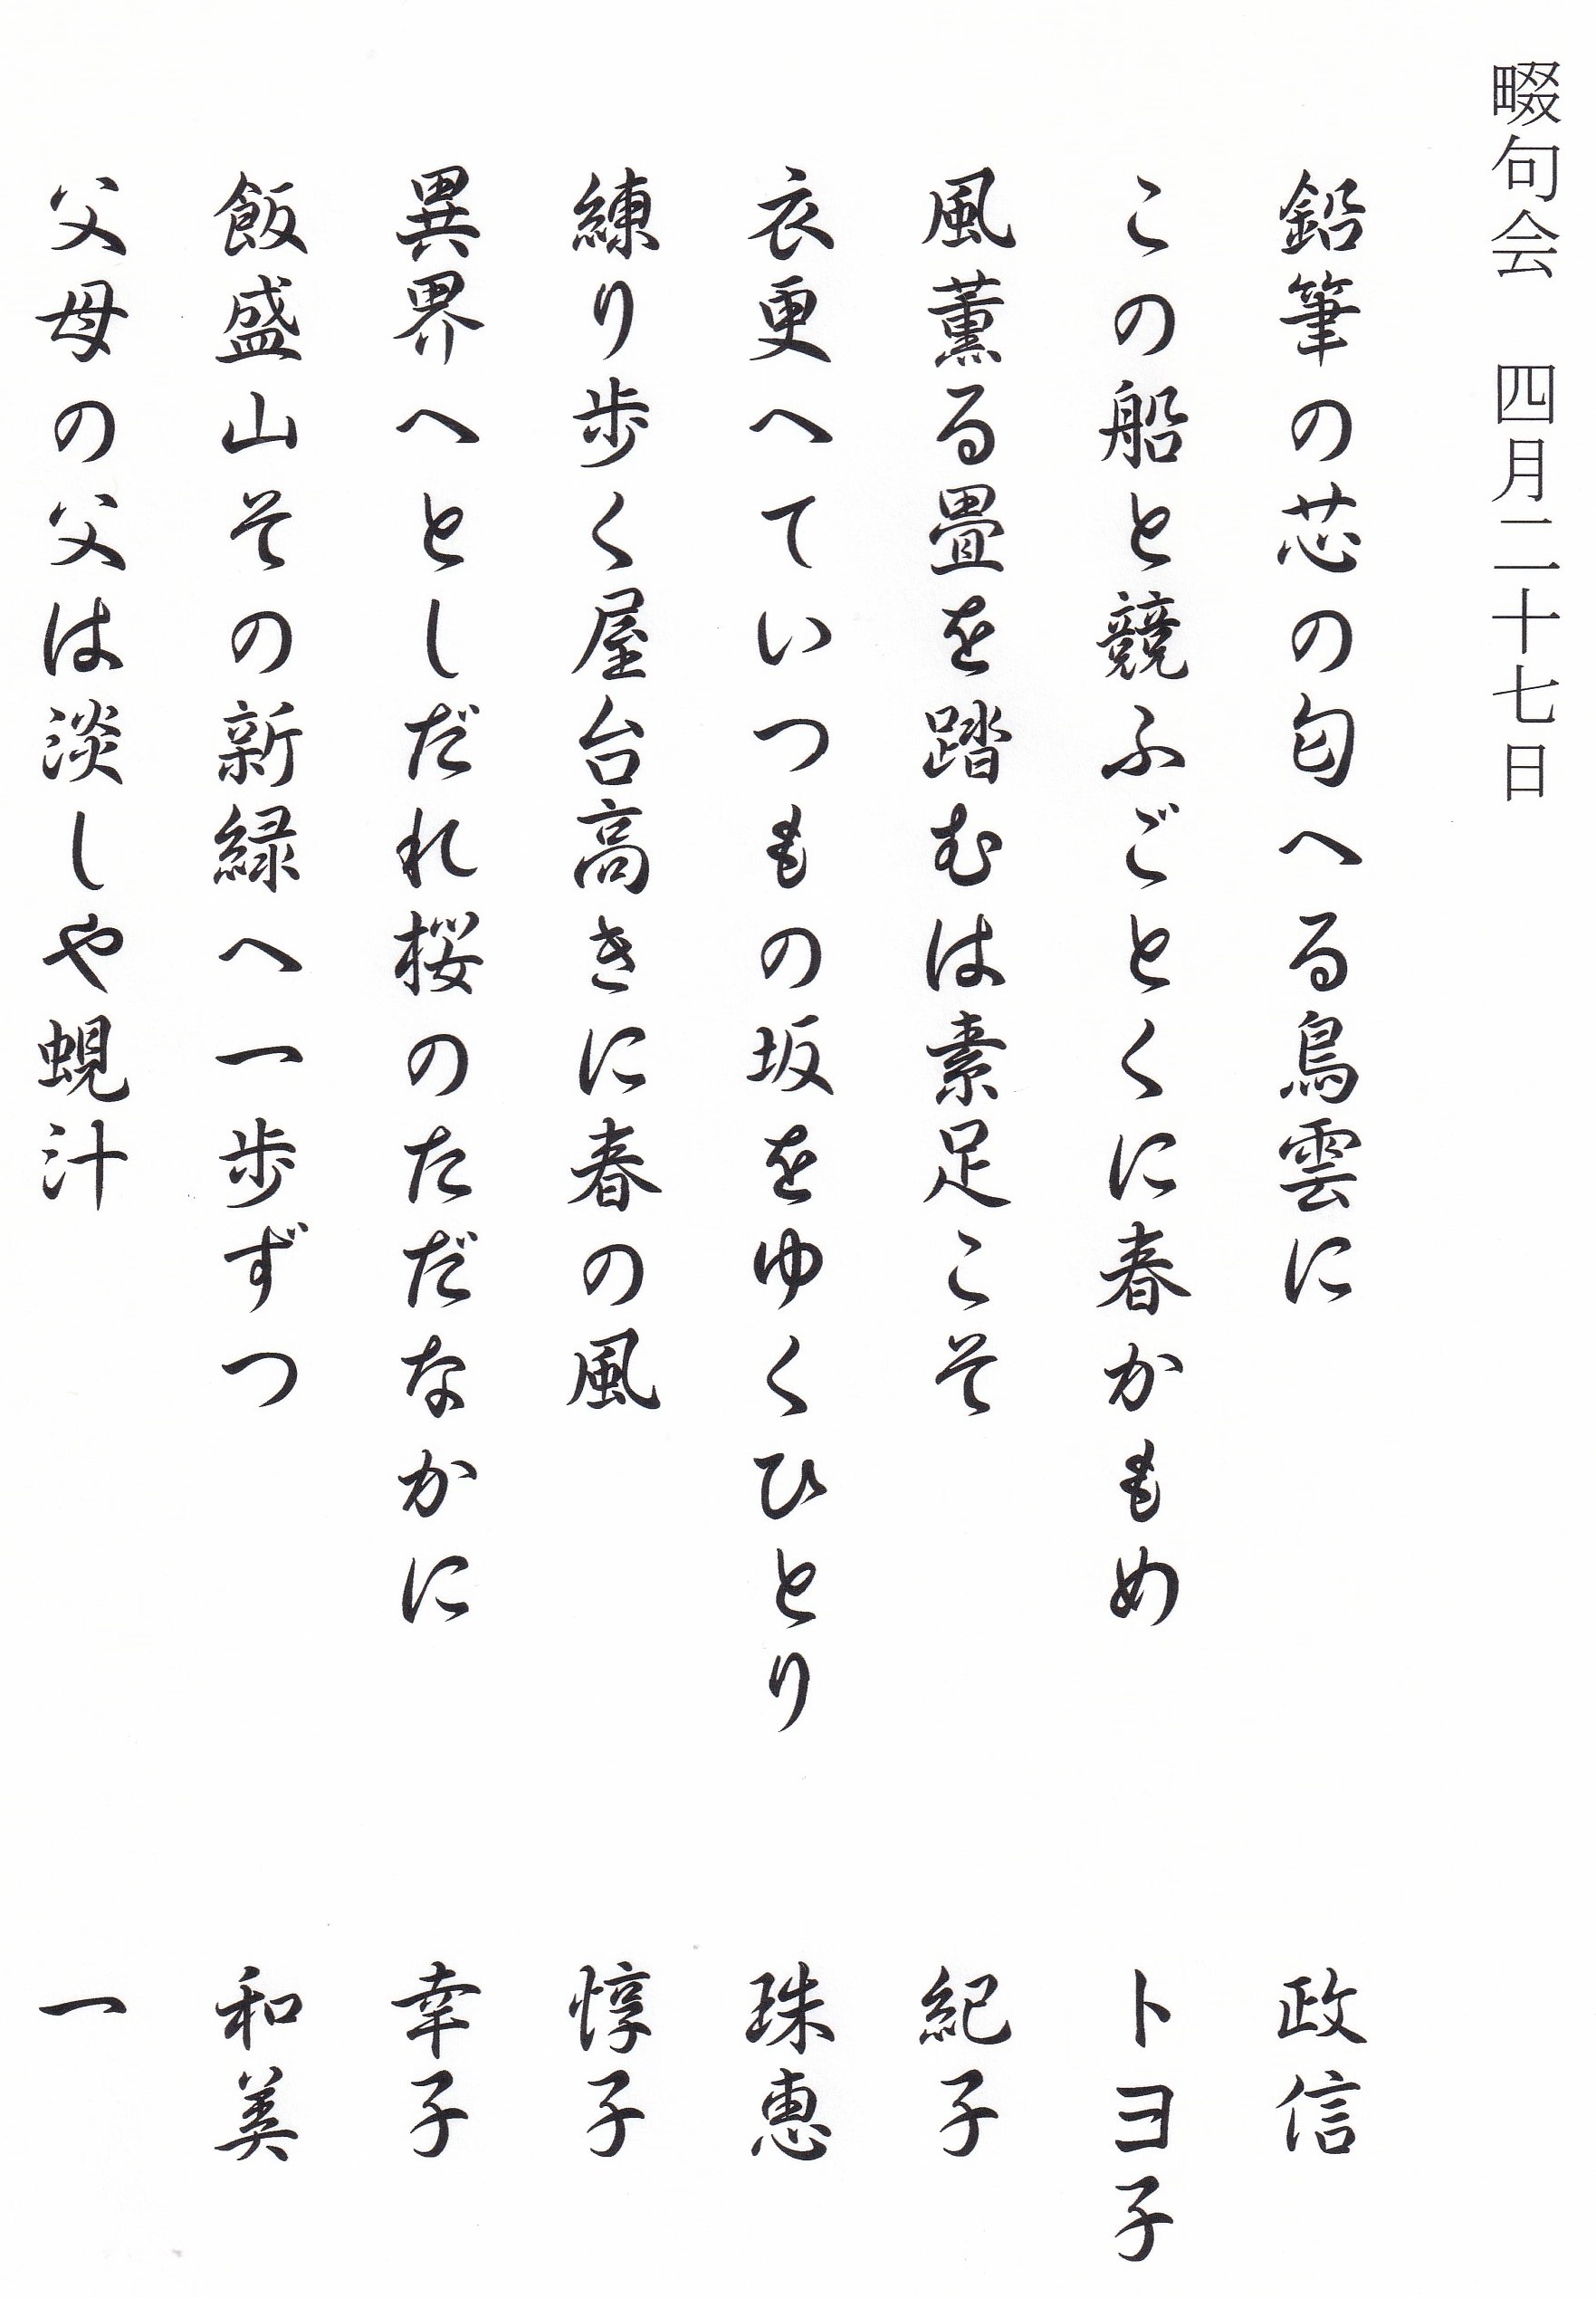 畷句会　四月二十七日
鉛筆の芯の匂へる鳥雲に　政信
この船と競ふごとくに春かもめ　トヨ子
風薫る畳を踏むは素足こそ　紀子
衣更へていつもの坂をゆくひとり　珠恵
練り歩く屋台高きに春の風　惇子
異界へとしだれ桜のただなかに　幸子
飯盛山その新緑へ一歩ずつ　和美
父母の父は淡しや蜆汁　一